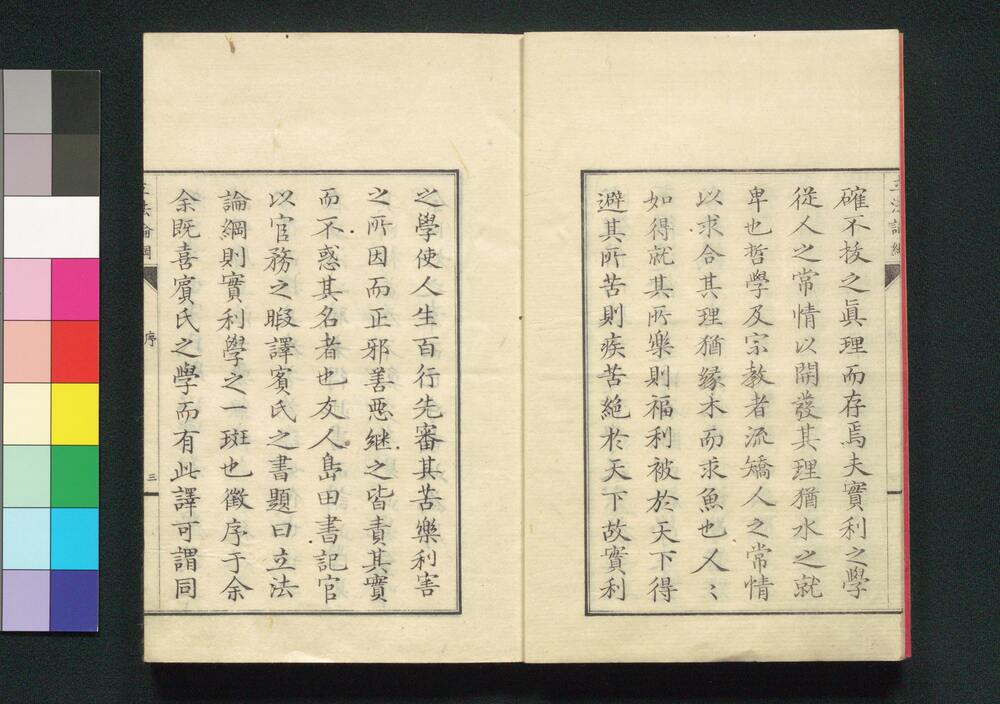 確不抜之眞理而存焉夫實利之學
從人之常情以開發其理猶水之就
卑也哲學及宗教者流矯人之常情
以求合其理猶緣木而求魚也人〻
如得就其所樂則福利被於天下得
避其所苦則疾苦絶於天下故實利
之學使人生百行先審其苦樂利害
之所因而正邪善惡継之皆責其實
而不惑其名者也友人島田書記官
以官務之暇譯賓氏之書題曰立法
論綱則實利學之一斑也徴序于余
余既喜賓氏之學而有此譯可謂同
立法論綱
序
三